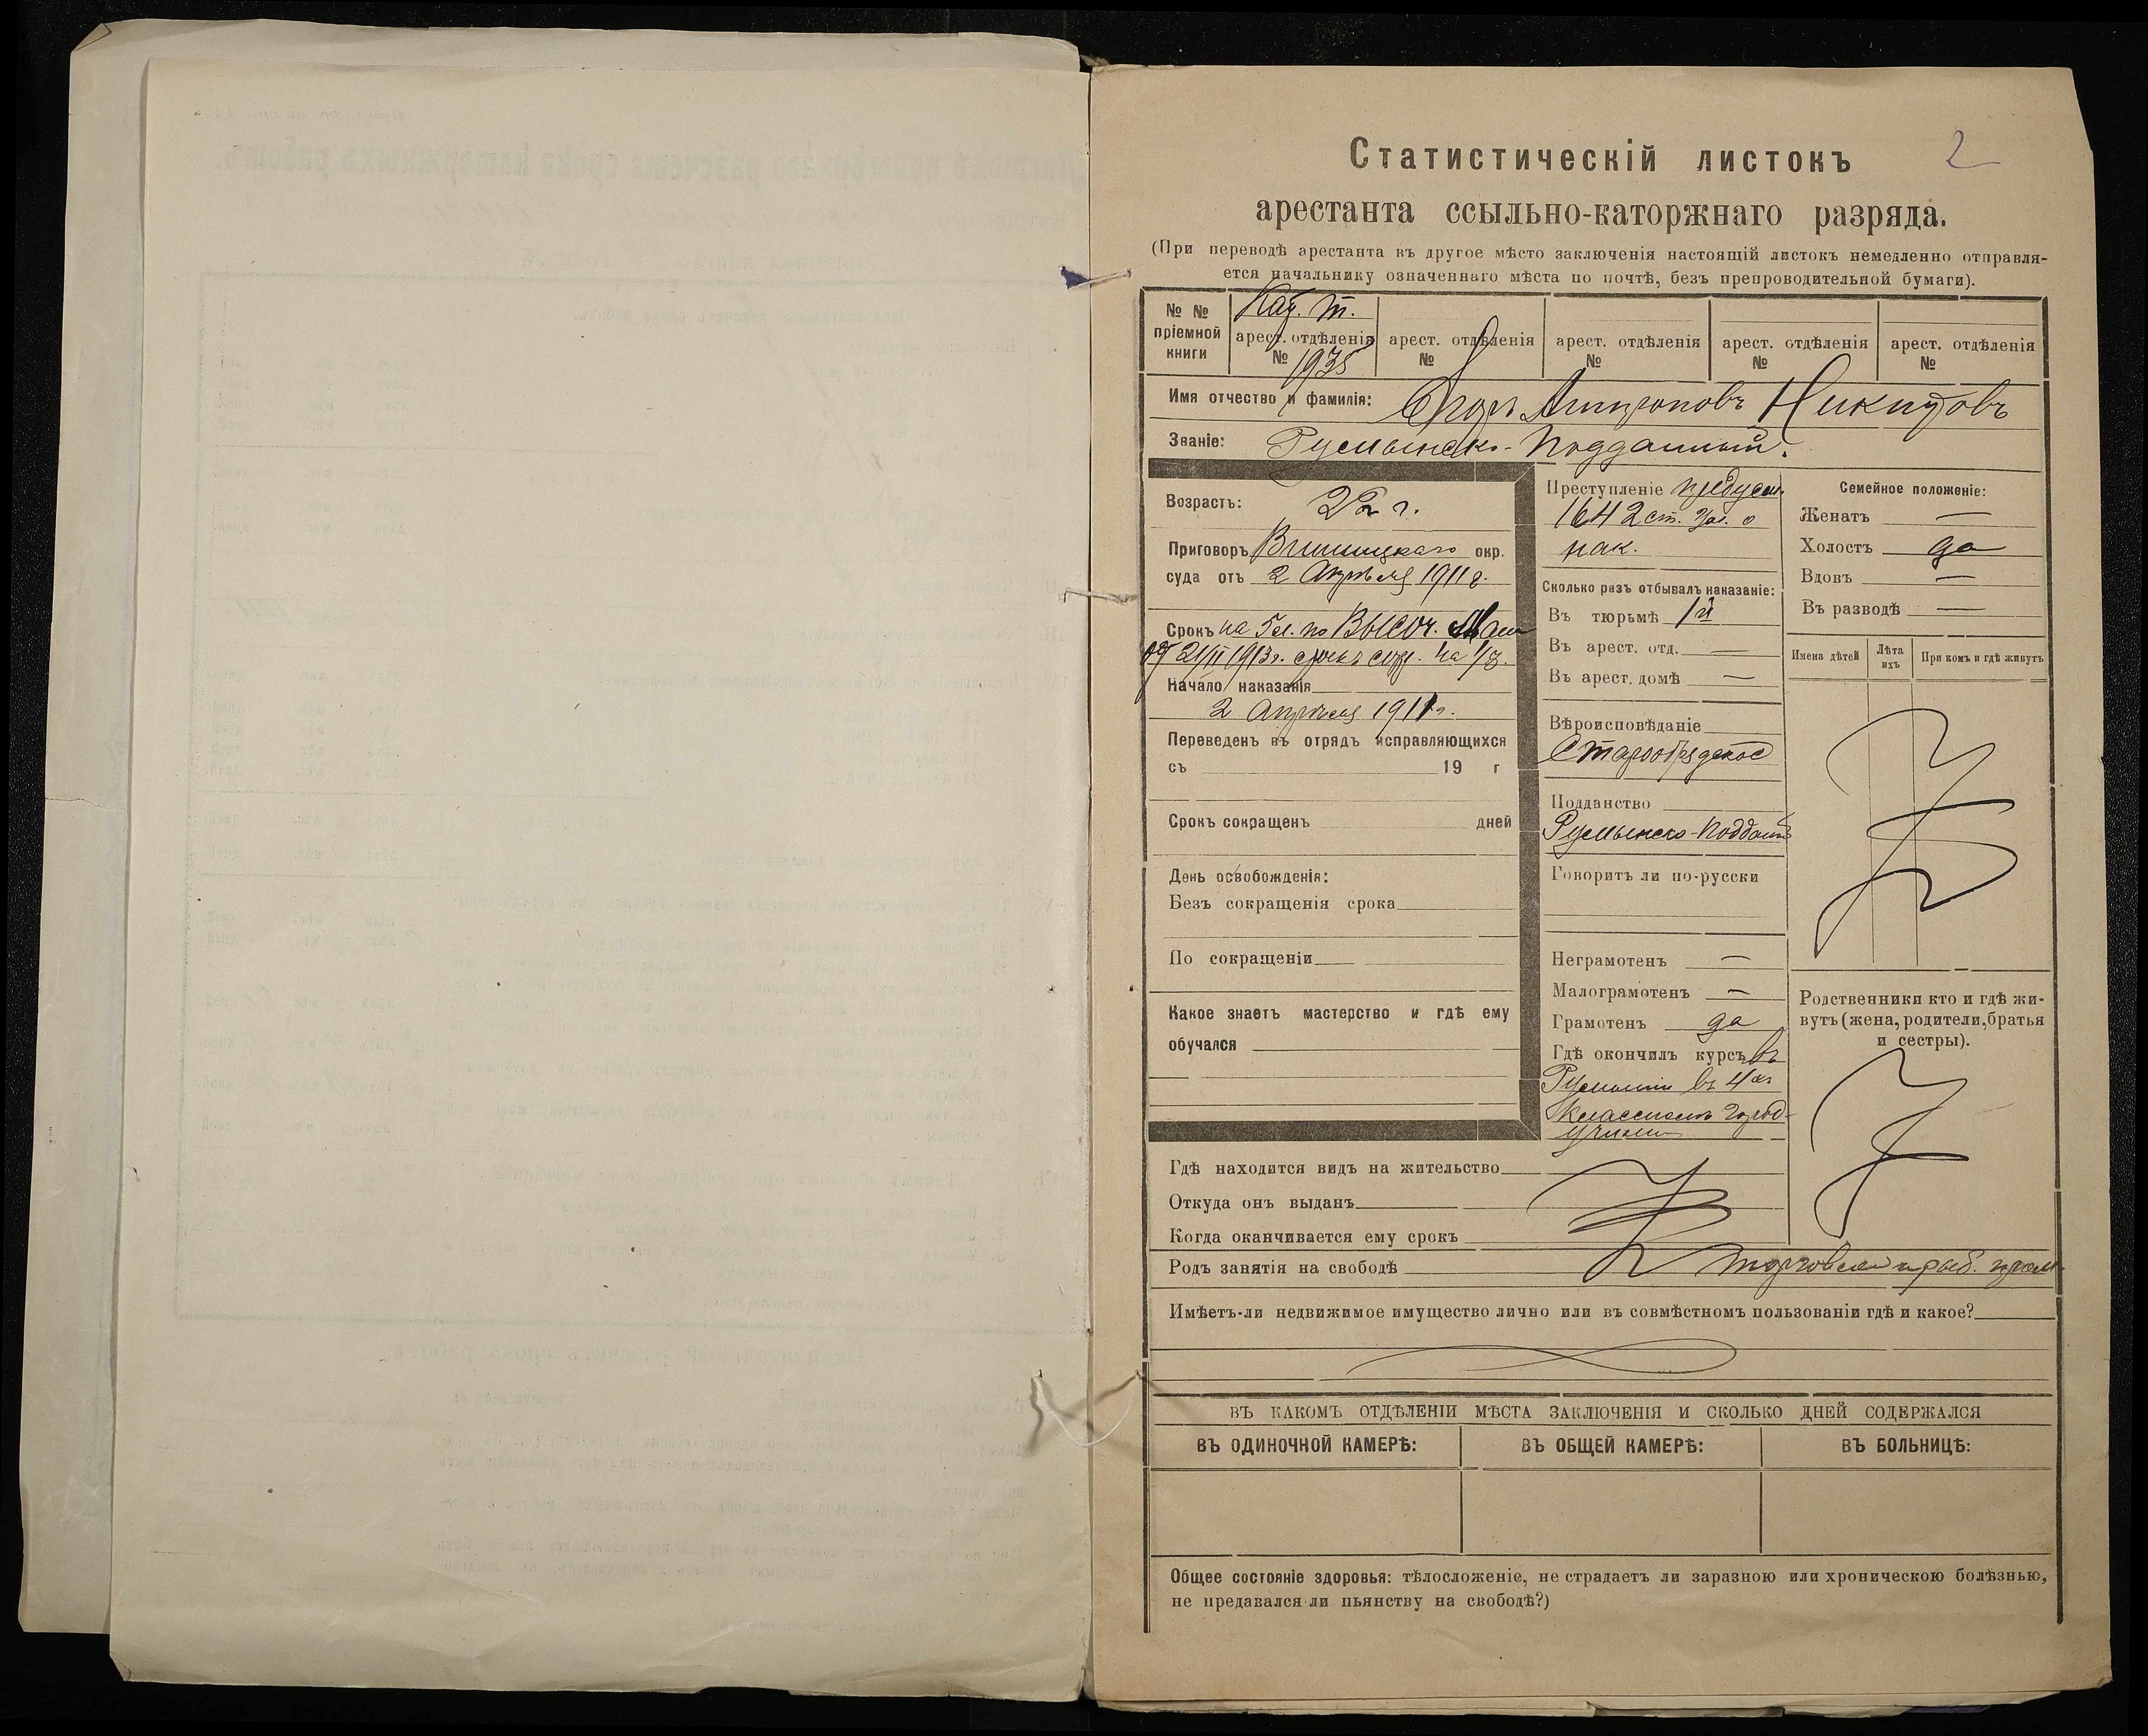 2
Статистическій листокъ
арестанта ссыльно-каторжнаго разряда.
(При переводѣ арестанта въ другое мѣсто заключенія настоящій листокъ немедленно отправля-
ется начальнику означеннаго мѣста по почтѣ, безъ препроводительной бумаги).
№ № пріемной книги
Кат. т. арест. отдѣленія № 1935
арест. отдѣленія №
арест. отдѣленія №
арест. отдѣленія №
арест. отдѣленія №
Имя отчество и фамилія: Егоръ Никитовъ
Званіе: Румынско-подданный.
Возрастъ: 22 г.
Приговоръ Винницкаго окр.
суда отъ 2 Апрѣля 1911 г.
Срокъ на 5 л. по Высоч. Ман
от 21/II 1913 г. срокъ сокр. на 1/3.
Начало наказанія
2 Апрѣля 1911 г.
Переведенъ въ отрядъ исправляющихся
съ 19 г
Срокъ сокращенъ дней
День освобожденія:
Безъ сокращенія срока
По сокращеніи
Какое знаетъ мастерство и гдѣ ему
обучался
Преступленіе предусм.
1642 ст. Ул. о
нак.
Сколько разъ отбывалъ наказаніе:
Въ тюрьмѣ 1й
Въ арест. отд. —
Въ арест. домѣ —
Вѣроисповѣданіе
Старообрядское
Подданство
Румынско-поддан
Говоритъ ли по-русски
Неграмотенъ —
Малограмотенъ —
Грамотенъ да
Гдѣ окончилъ курсъ въ
Румыніи въ 4хъ
классномъ город-
училищ
Семейное положеніе:
Женатъ —
Холостъ да
Вдовъ —
Въ разводѣ —
Имена дѣтей
Лѣта ихъ
При комъ и гдѣ живутъ
Родственники кто и гдѣ жи-
вутъ (жена, родители, братья
и сестры).
Гдѣ находится видъ на жительство
Откуда онъ выданъ
Когда оканчивается ему срокъ
Родъ занятія на свободѣ торговлей рыб. пром.
Имѣетъ-ли недвижимое имущество лично или въ совмѣстномъ пользованіи гдѣ и какое?
ВЪ КАКОМЪ ОТДѢЛЕНІИ МѢСТА ЗАКЛЮЧЕНІЯ И СКОЛЬКО ДНЕЙ СОДЕРЖАЛСЯ
ВЪ ОДИНОЧНОЙ КАМЕРѢ:
ВЪ ОБЩЕЙ КАМЕРѢ:
ВЪ БОЛЬНИЦѢ:
Общее состояніе здоровья: тѣлосложеніе, не страдаетъ ли заразною или хроническою болѣзнью,
не предавался ли пьянству на свободѣ?)